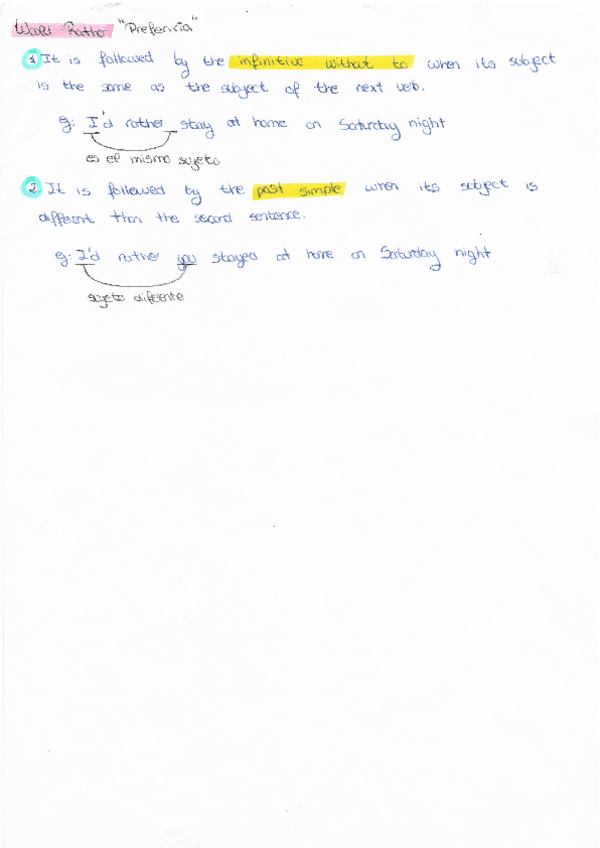 Would Rather "Preferiría"
1 It is followed by the infinitive without to when its subject
is the same as the subject of the next verb.
g: I'd rather _ stay at home on Saturday night
es el mismo sujeto
2 It is followed by the past simple when its subject is
different than the second sentence.
g: I'd rather you stayed at home on Saturday night
sujeto diferente